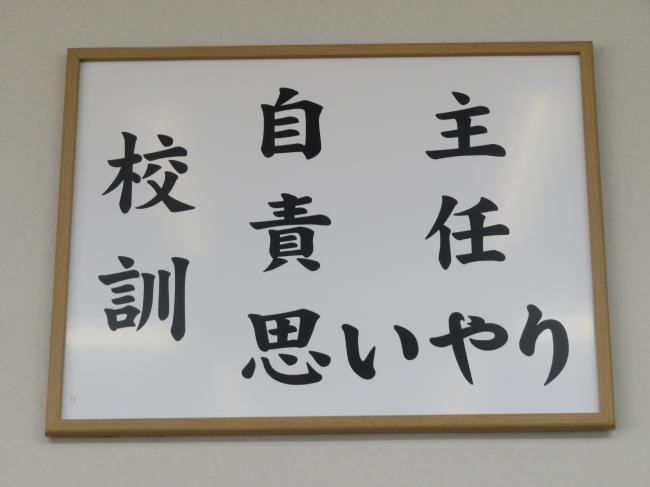 校訓
自主
責任
思いやり